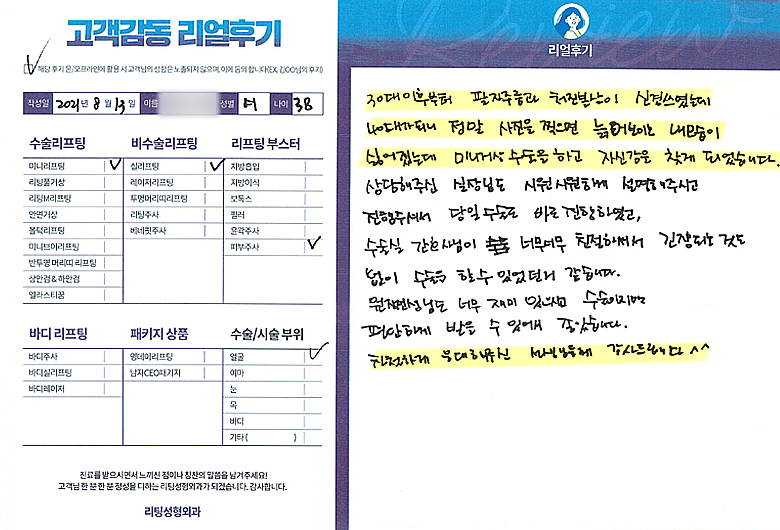 고객감동 리얼후기
해당 후기 온/오프라인에 활용 시 고객님의 성함은 노출되지 않으며, 이에 동의합니다(EX. 김OO님의 후기)
작성일 2021년 8월 13일 이름 성별 여 나이 38
수술리프팅
미니리프팅
리팅풀거상
리팅M리프팅
안면거상
볼턱리프팅
미니브이리프팅
반투명 머리띠 리프팅
상안검 & 하안검
엘라스티꿈
비수술리프팅
실리프팅
레이저리프팅
투명머리띠리프팅
리팅주사
베네핏주사
리프팅 부스터
지방흡입
지방이식
보톡스
필러
윤곽주사
피부주사
바디 리프팅
바디주사
바디실리프팅
바디레이저
패키지 상품
영데이리프팅
남자CEO패키지
수술/시술 부위
얼굴
이마
눈
목
바디
기타 ( )
진료를 받으시면서 느끼신 점이나 칭찬의 말씀을 남겨주세요!
고객님 한 분 한 분 정성을 다하는 리팅성형외과가 되겠습니다. 감사합니다.
리팅성형외과
Review
리얼후기
30대이후부터 팔자주름과 처진볼살이 신경쓰였는데
40대가되니 정말 사진을 찍으면 늙어보이는 내모습이
싫어졌는데 미니거상 수술을 하고 자신감을 찾게 되었습니다.
상담해주신 실장님도 시원시원하게 설명해주시고
진행해주셔서 당일수술도 바로 진행하였고,
수술실 간호사님이 너무너무 친절하셔서 긴장되는 것도
없이 수술을 할 수 있었던거 같습니다.
원장선생님도 너무 재미 있으시고 수술이지만
편안하게 받을 수 있어서 좋았습니다.
친절하게 응대해주신 선생님들께 감사드립니다 ^^